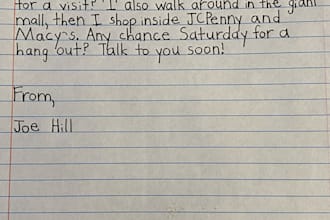 for a visit? I also walk around in the giant
mall, then I shop inside JCPenny and
Macy's. Any chance Saturday for a
hang out? Talk to you soon!
From,
Joe Hill